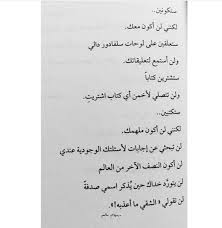 ستكونين..
لكنني لن أكون معك.
ستعلقين على لوحات سلفادور دالي
ولن أستمع لتعليقاتك.
ستشترين كتاباً
ولن تتصلي لأخمن أي كتاب اشتريت.
ستكتبين..
لكنني لن أكون ملهمك.
لن تبحثي عن إجابات لأسئلتك الوجودية عندي
لن أكون النصف الآخر من العالم
لن يتورَّد خداك حين يُذكر اسمي صدفةً
لن تقولي «الشقي ما أعذبه!».